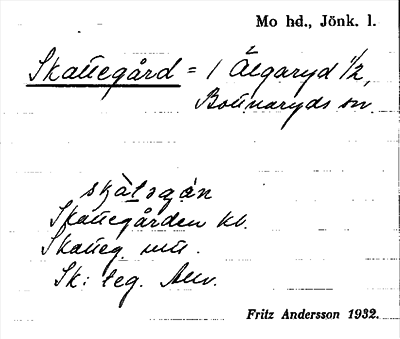 Mo hd., Jönk. l.
Skattegård = 1 Älgaryd 1/2,
Bottnaryds sn.
skàtəgán
Skattegården kb.
Skatteg. mtl.
Sk: leg.
Fritz Andersson 1932.